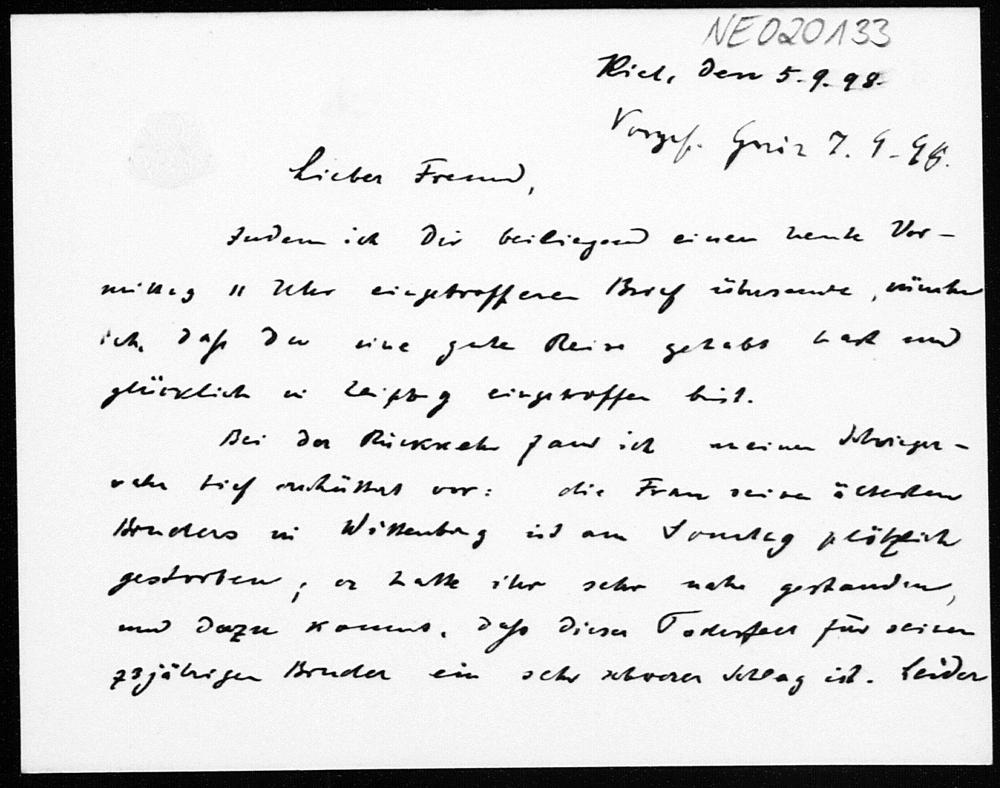 NE020133
Kiel, den 5.9.98.
Vorgef. 7.9.98.
Lieber Freund,
Indem ich Dir beiliegend einen heute Vor-
mittag 11 Uhr eingetroffenen Brief übersende, wünsche
ich, daß Du eine gute Reise gehabt hast und
glücklich in Leipzig eingetroffen bist.
Bei der Rückkehr fand ich meinen Schwieger-
vater tief erschüttert vor: die Frau seines ältesten
Bruders in Wittenberg ist am Sonntag plötzlich
gestorben; er hatte ihr sehr nahe gestanden,
und dazu kommt, daß dieser Todesfall für seinen
73jährigen Bruder ein sehr schwerer Schlag ist. Leider